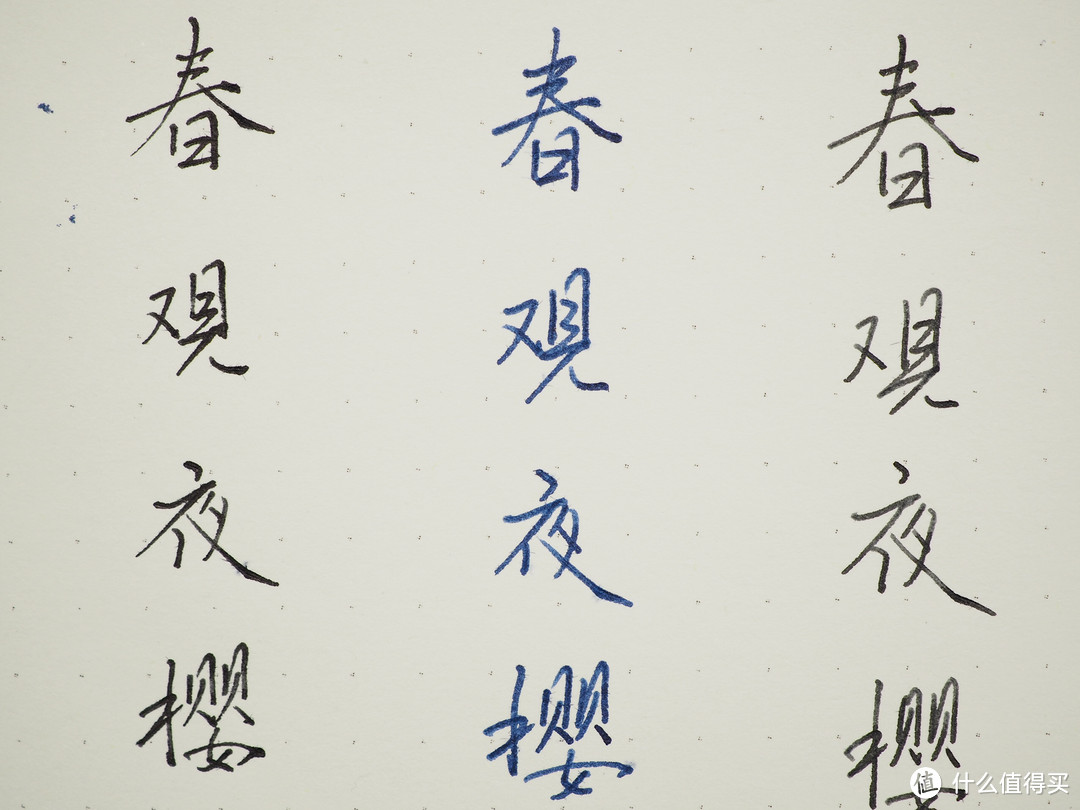 春 春 春
观 观 观
夜 夜 夜
樱 樱 樱
值 什么值得买